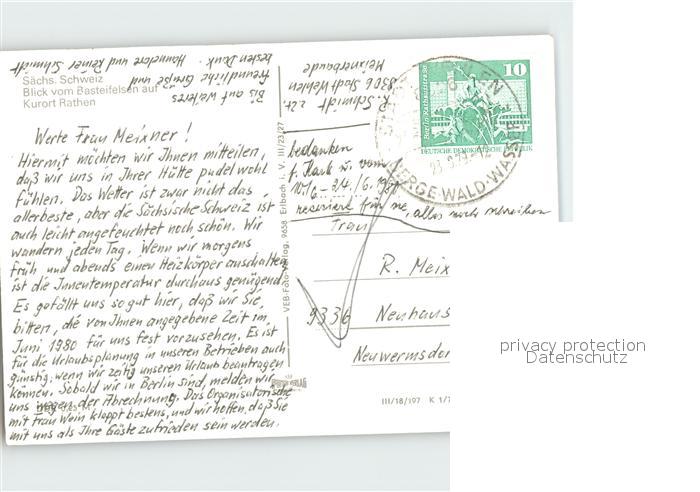 Sächs. Schweiz
Blick vom Basteifelsen auf
Kurort Rathen
Werte Frau Meixner!
Hiermit möchten wir Ihnen mitteilen,
daß wir uns in Ihrer Hütte pudelwohl
fühlen. Das Wetter ist zwar nicht das
allerbeste, aber die Sächsische Schweiz ist
auch leicht angefeuchtet noch schön. Wir
wandern jeden Tag. Wenn wir morgens
früh und abends einen Heizkörper anschalten
ist die Innentemperatur durchaus genügend.
Es gefällt uns so gut hier, daß wir Sie,
bitten, die von Ihnen angegebene Zeit im
Juni 1980 für uns fest vorzusehen. Es ist
für die Urlaubsplanung in unseren Betrieben auch
günstig, wenn wir zeitig unseren Urlaub beantragen
können. Sobald wir in Berlin sind, melden wir
uns wegen der Abrechnung. Das Organisatorische
mit Frau Wein klappt bestens, und wir hoffen, daß Sie
mit uns als Ihre Gäste zufrieden sein werden.
Bis auf weiteres
freundliche Grüße und
besten Dank Hannelore und Reiner Schmidt
VEB-Foto-Verlag, 9658 Erlbach i. V. III/23/27
R. Schmidt z.Zt.
8306 Stadt Wehlen
Meixnerbaude
10
Berlin, Rathausstraße
DEUTSCHE DEMOKRATISCHE REPUBLIK
BERGE·WALD·WASSER
bedanken
reserviert für sie, alles noch schreiben
Frau
R. Meix
9336 Neuhaus
Neuwernsdor
III/18/197 K 1/7
privacy protection
Datenschutz